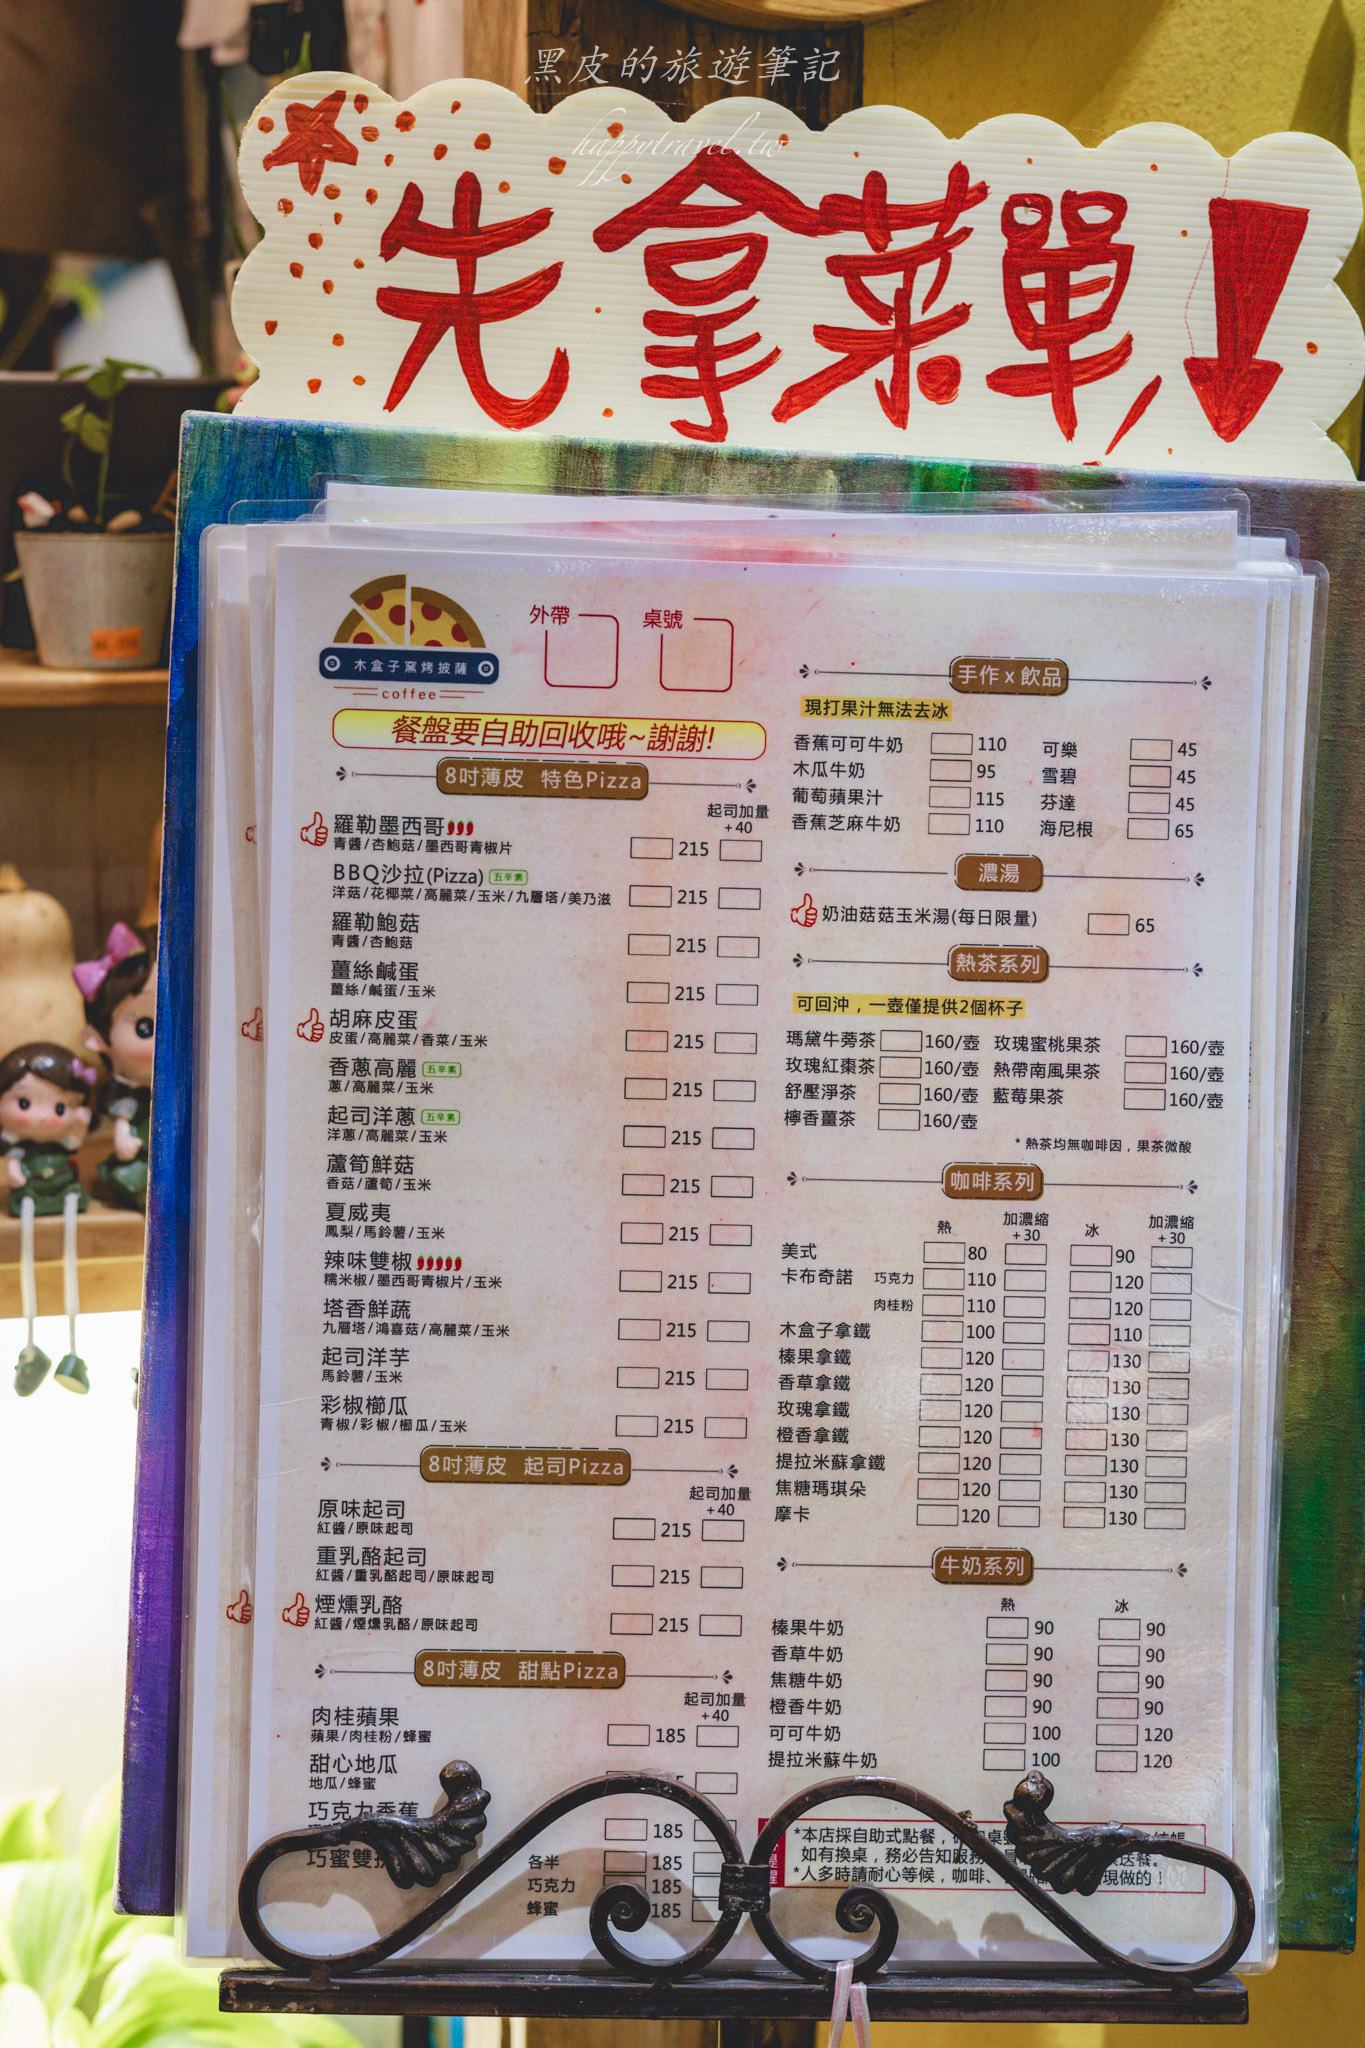 黑皮的旅遊筆記
happytravel.tw
先拿菜單!
木盒子窯烤披薩
coffee
外帶
桌號
餐盤要自助回收哦~謝謝!
8吋薄皮 特色Pizza
起司加量
+40
羅勒墨西哥
青醬/杏鮑菇/墨西哥青椒片 215
BBQ沙拉(Pizza) 五辛素
洋菇/花椰菜/高麗菜/玉米/九層塔/美乃滋 215
羅勒鮑菇
青醬/杏鮑菇 215
薑絲鹹蛋
薑絲/鹹蛋/玉米 215
胡麻皮蛋
皮蛋/高麗菜/香菜/玉米 215
香蔥高麗 五辛素
蔥/高麗菜/玉米 215
起司洋蔥 五辛素
洋蔥/高麗菜/玉米 215
蘆筍鮮菇
香菇/蘆筍/玉米 215
夏威夷
鳳梨/馬鈴薯/玉米 215
辣味雙椒
糯米椒/墨西哥青椒片/玉米 215
塔香鮮蔬
九層塔/鴻喜菇/高麗菜/玉米 215
起司洋芋
馬鈴薯/玉米 215
彩椒櫛瓜
青椒/彩椒/櫛瓜/玉米 215
8吋薄皮 起司Pizza
起司加量
+40
原味起司
紅醬/原味起司 215
重乳酪起司
紅醬/重乳酪起司/原味起司 215
煙燻乳酪
紅醬/煙燻乳酪/原味起司 215
8吋薄皮 甜點Pizza
起司加量
+40
肉桂蘋果
蘋果/肉桂粉/蜂蜜 185
甜心地瓜
地瓜/蜂蜜
巧克力香蕉
185
巧蜜雙
各半 185
巧克力 185
蜂蜜 185
手作x飲品
現打果汁無法去冰
香蕉可可牛奶 110 可樂 45
木瓜牛奶 95 雪碧 45
葡萄蘋果汁 115 芬達 45
香蕉芝麻牛奶 110 海尼根 65
濃湯
奶油菇菇玉米湯(每日限量) 65
熱茶系列
可回沖，一壺僅提供2個杯子
瑪黛牛蒡茶 160/壺 玫瑰蜜桃果茶 160/壺
玫瑰紅棗茶 160/壺 熱帶南風果茶 160/壺
舒壓淨茶 160/壺 藍莓果茶 160/壺
檸香薑茶 160/壺
*熱茶均無咖啡因，果茶微酸
咖啡系列
熱 加濃縮 冰 加濃縮
+30 +30
美式 80 90
卡布奇諾 巧克力 110 120
肉桂粉 110 120
木盒子拿鐵 100 110
榛果拿鐵 120 130
香草拿鐵 120 130
玫瑰拿鐵 120 130
橙香拿鐵 120 130
提拉米蘇拿鐵 120 130
焦糖瑪琪朵 120 130
摩卡 120 130
牛奶系列
熱 冰
榛果牛奶 90 90
香草牛奶 90 90
焦糖牛奶 90 90
橙香牛奶 90 90
可可牛奶 100 120
提拉米蘇牛奶 100 120
*本店採自助式點餐，
如有換桌，務必告知服務 送餐。
*人多時請耐心等候，咖啡、 現做的!